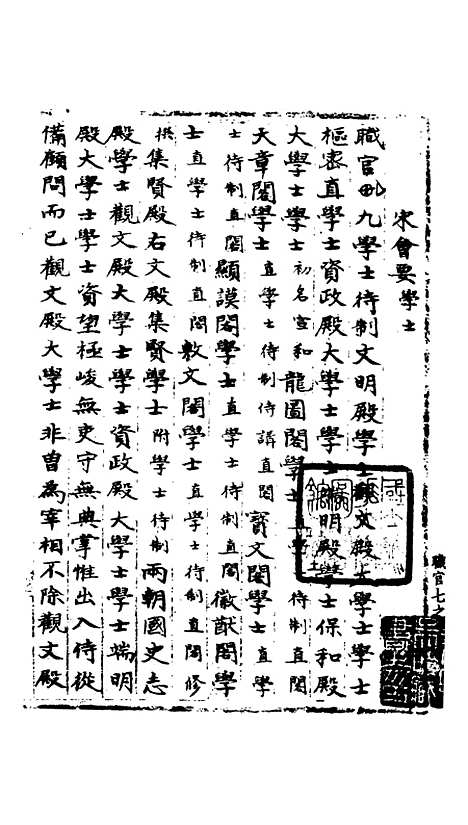 宋會要 學士
職官 九學士待制文明殿學士觀文殿大學士學士
樞密直學士資政殿大學士學士端明殿學學士保和殿
大學士學士初名宣和龍圖閣學士直學士待制直閣
天章閣學士直學士待制侍講直閣寶文閣學士直學
士待制直閣顯謨閣學士直學士待制直閣徽猷閣學
士直學士待制直閣敷文閣學士直學士待制直閣修
撰集賢殿右文殿集賢學士附學士待制兩朝國史志
殿學士觀文殿大學士學士資政殿大學士學士端明
殿大學士學士資望極峻無吏守無典掌惟出入侍從
備顧問而已觀文殿大學士非曾為宰相不除觀文殿
職官七之